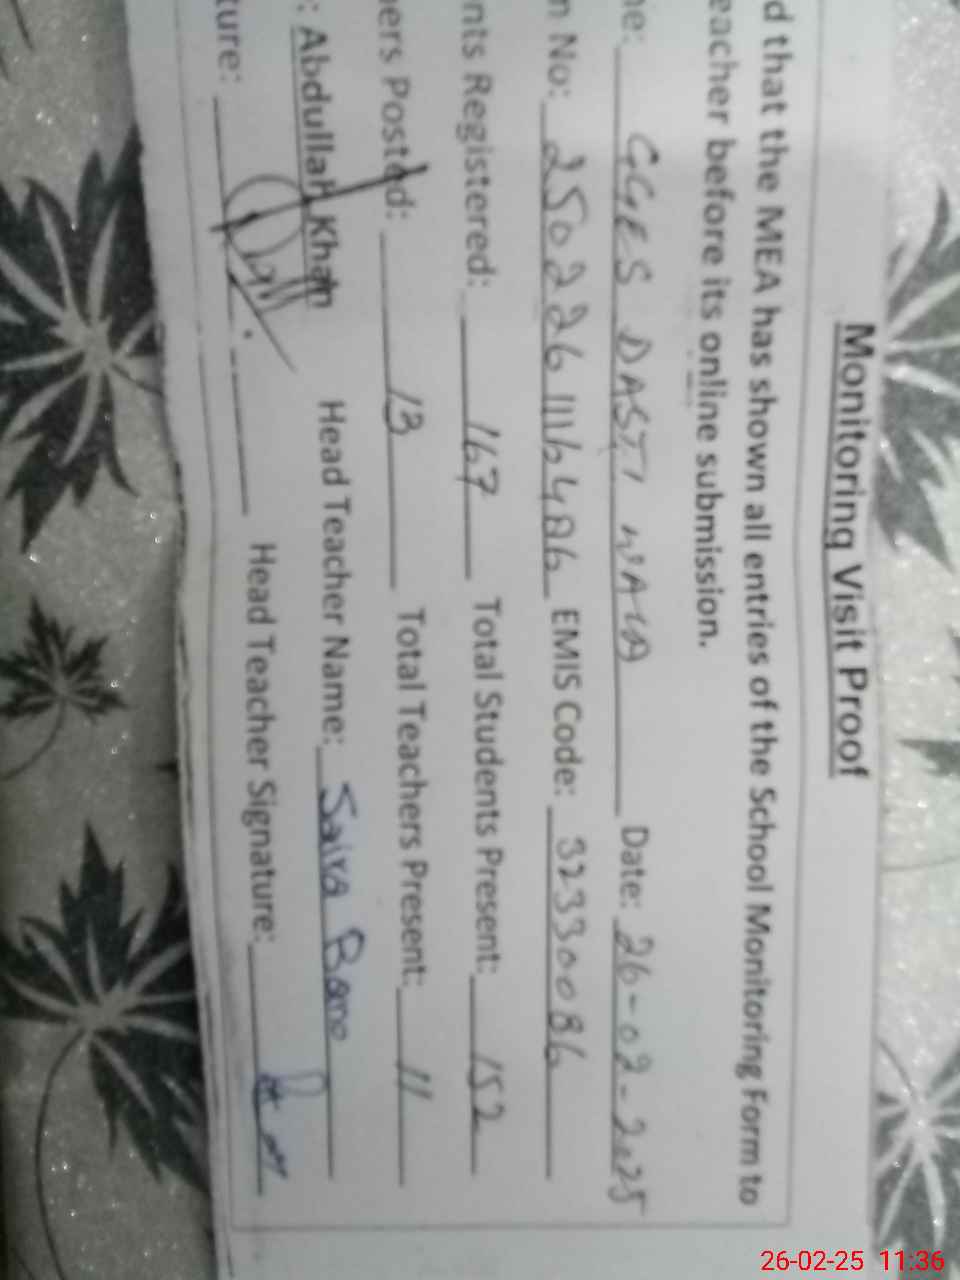 Monitoring Visit Proof
d that the MEA has shown all entries of the School Monitoring Form to
eacher before its online submission.
ne: GGES DASTI WALA Date: 26-02-2025
n No: 2502261116486 EMIS Code: 32330086
nts Registered: 167 Total Students Present: 152
ers Posted: 13 Total Teachers Present: 11
: Abdullah Khan Head Teacher Name: Saira Bano
ture: Head Teacher Signature:
26-02-25 11:36